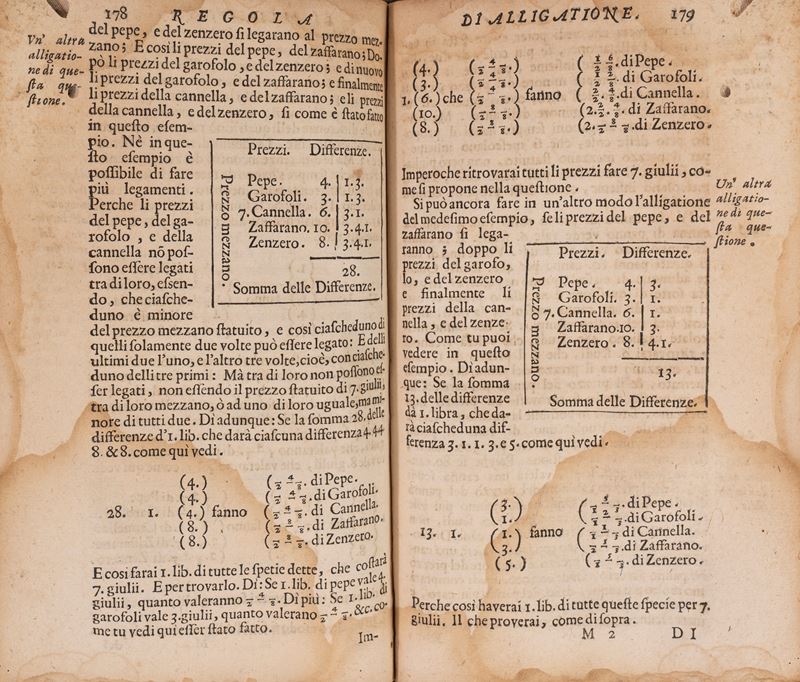 178 REGOLA
Un' altra
alligatio-
ne di que-
sta que-
stione.
del pepe, e del zenzero si legarano al prezzo mez-
zano; E cosi li prezzi del pepe, del zaffarano; Do-
pò li prezzi del garofolo, e del zenzero; e di nuovo
li prezzi del garofolo, e del zaffarano; e finalmente
li prezzi della cannella, e del zaffarano; e li prezzi
della cannella, e del zenzero, si come è stato fatto
in questo esem-
pio. Nè in que-
sto esempio è
possibile di fare
più legamenti.
Perche li prezzi
del pepe, del ga-
rofolo, e della
cannella nō pos-
sono essere legati
tra di loro, essen-
do, che ciasche-
duno è minore
Prezzi. Differenze.
Prezzo mezzano.
Pepe. 4. 1.3.
Garofoli. 3. 1.3.
7. Cannella. 6. 3.1.
Zaffarano. 10. 3.4.1.
Zenzero. 8. 3.4.1.
28.
Somma delle Differenze.
del prezzo mezzano statuito, e così ciascheduno di
quelli solamente due volte può essere legato: E delli
ultimi due l'uno, e l'altro tre volte, cioè, con ciasche-
duno delli tre primi: Mà tra di loro non possono es-
ser legati, non essendo il prezzo statuito di 7. giulii,
tra di loro mezzano, ò ad uno di loro uguale, ma mi-
nore di tutti due. Di adunque: Se la somma 28. delle
differenze d'1. lib. che darà ciascuna differenza 4. 4 4
8. & 8. come quì vedi.
28. 1.
(4.)
(4.)
(4.) fanno
(8.)
(8.)
di Pepe.
di Garofoli.
di Cannella.
di Zaffarano.
di Zenzero.
E cosi farai 1. lib. di tutte le spetie dette, che costarà
7. giulii. E per trovarlo. Dì: Se 1. lib. di pepe vale 4.
giulii, quanto valeranno Di più: Se 1. lib. di
garofoli vale 3. giulii, quanto valerano &c. co-
me tu vedi qui esser stato fatto.
Im-
DI ALLIGATIONE. 179
(4.)
(3.)
1. (6.) che fanno
(10.)
(8.)
di Pepe.
di Garofoli.
di Cannella.
di Zaffarano.
di Zenzero.
Imperoche ritrovarai tutti li prezzi fare 7. giulii, co-
me si propone nella questione.
Un' altra
alligatio-
ne di que-
sta que-
stione.
Si può ancora fare in un'altro modo l'alligatione
del medesimo esempio, se li prezzi del pepe, e del
zaffarano si lega-
ranno; doppo li
prezzi del garofo,
lo, e del zenzero
e finalmente li
prezzi della can-
nella, e del zenze-
ro. Come tu puoi
vedere in questo
esempio. Di adun-
que: Se la somma
13. delle differenze
dà 1. libra, che da-
rà ciascheduna dif-
Prezzi. Differenze.
Prezzo mezzano.
Pepe. 4. 3.
Garofoli. 3. 1.
7. Cannella. 6. 1.
Zaffarano. 10. 3.
Zenzero. 8. 4.1.
13.
Somma delle Differenze.
ferenza 3. 1. 1. 3. e 5. come quì vedi.
13. 1.
(3.)
(1.)
(1.) fanno
(3.)
(5.)
di Pepe.
di Garofoli.
di Cannella.
di Zaffarano.
di Zenzero.
Perche così haverai 1. lib. di tutte queste specie per 7.
giulii. Il che proverai, come di sopra.
M 2 DI